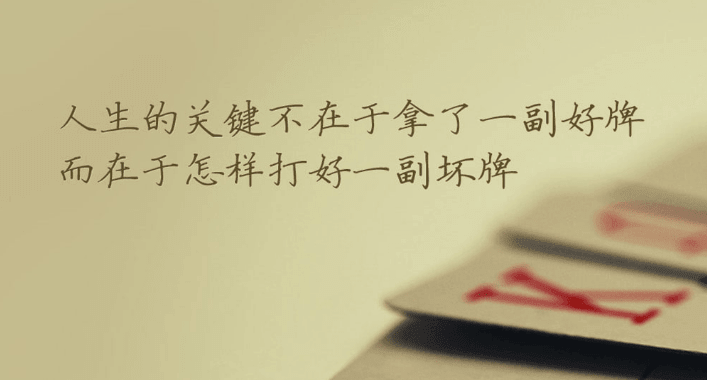 人生的关键不在于拿了一副好牌
而在于怎样打好一副坏牌
K